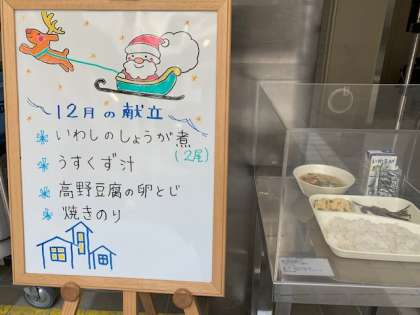 12月の献立
いわしのしょうが煮
(2尾)
うすくず汁
高野豆腐の卵とじ
焼きのり